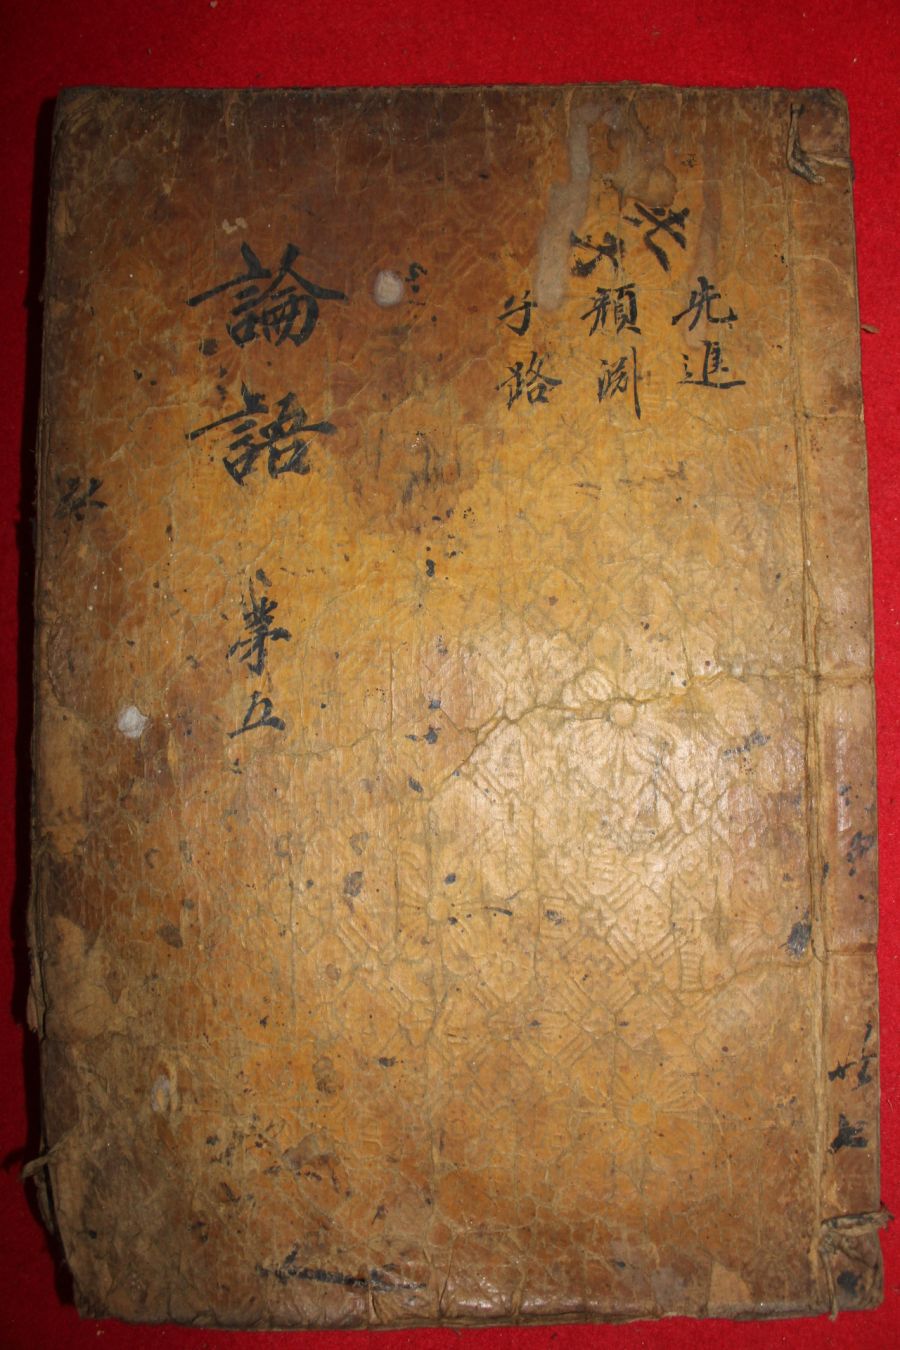 先進
顔淵
子路
論語
苐五